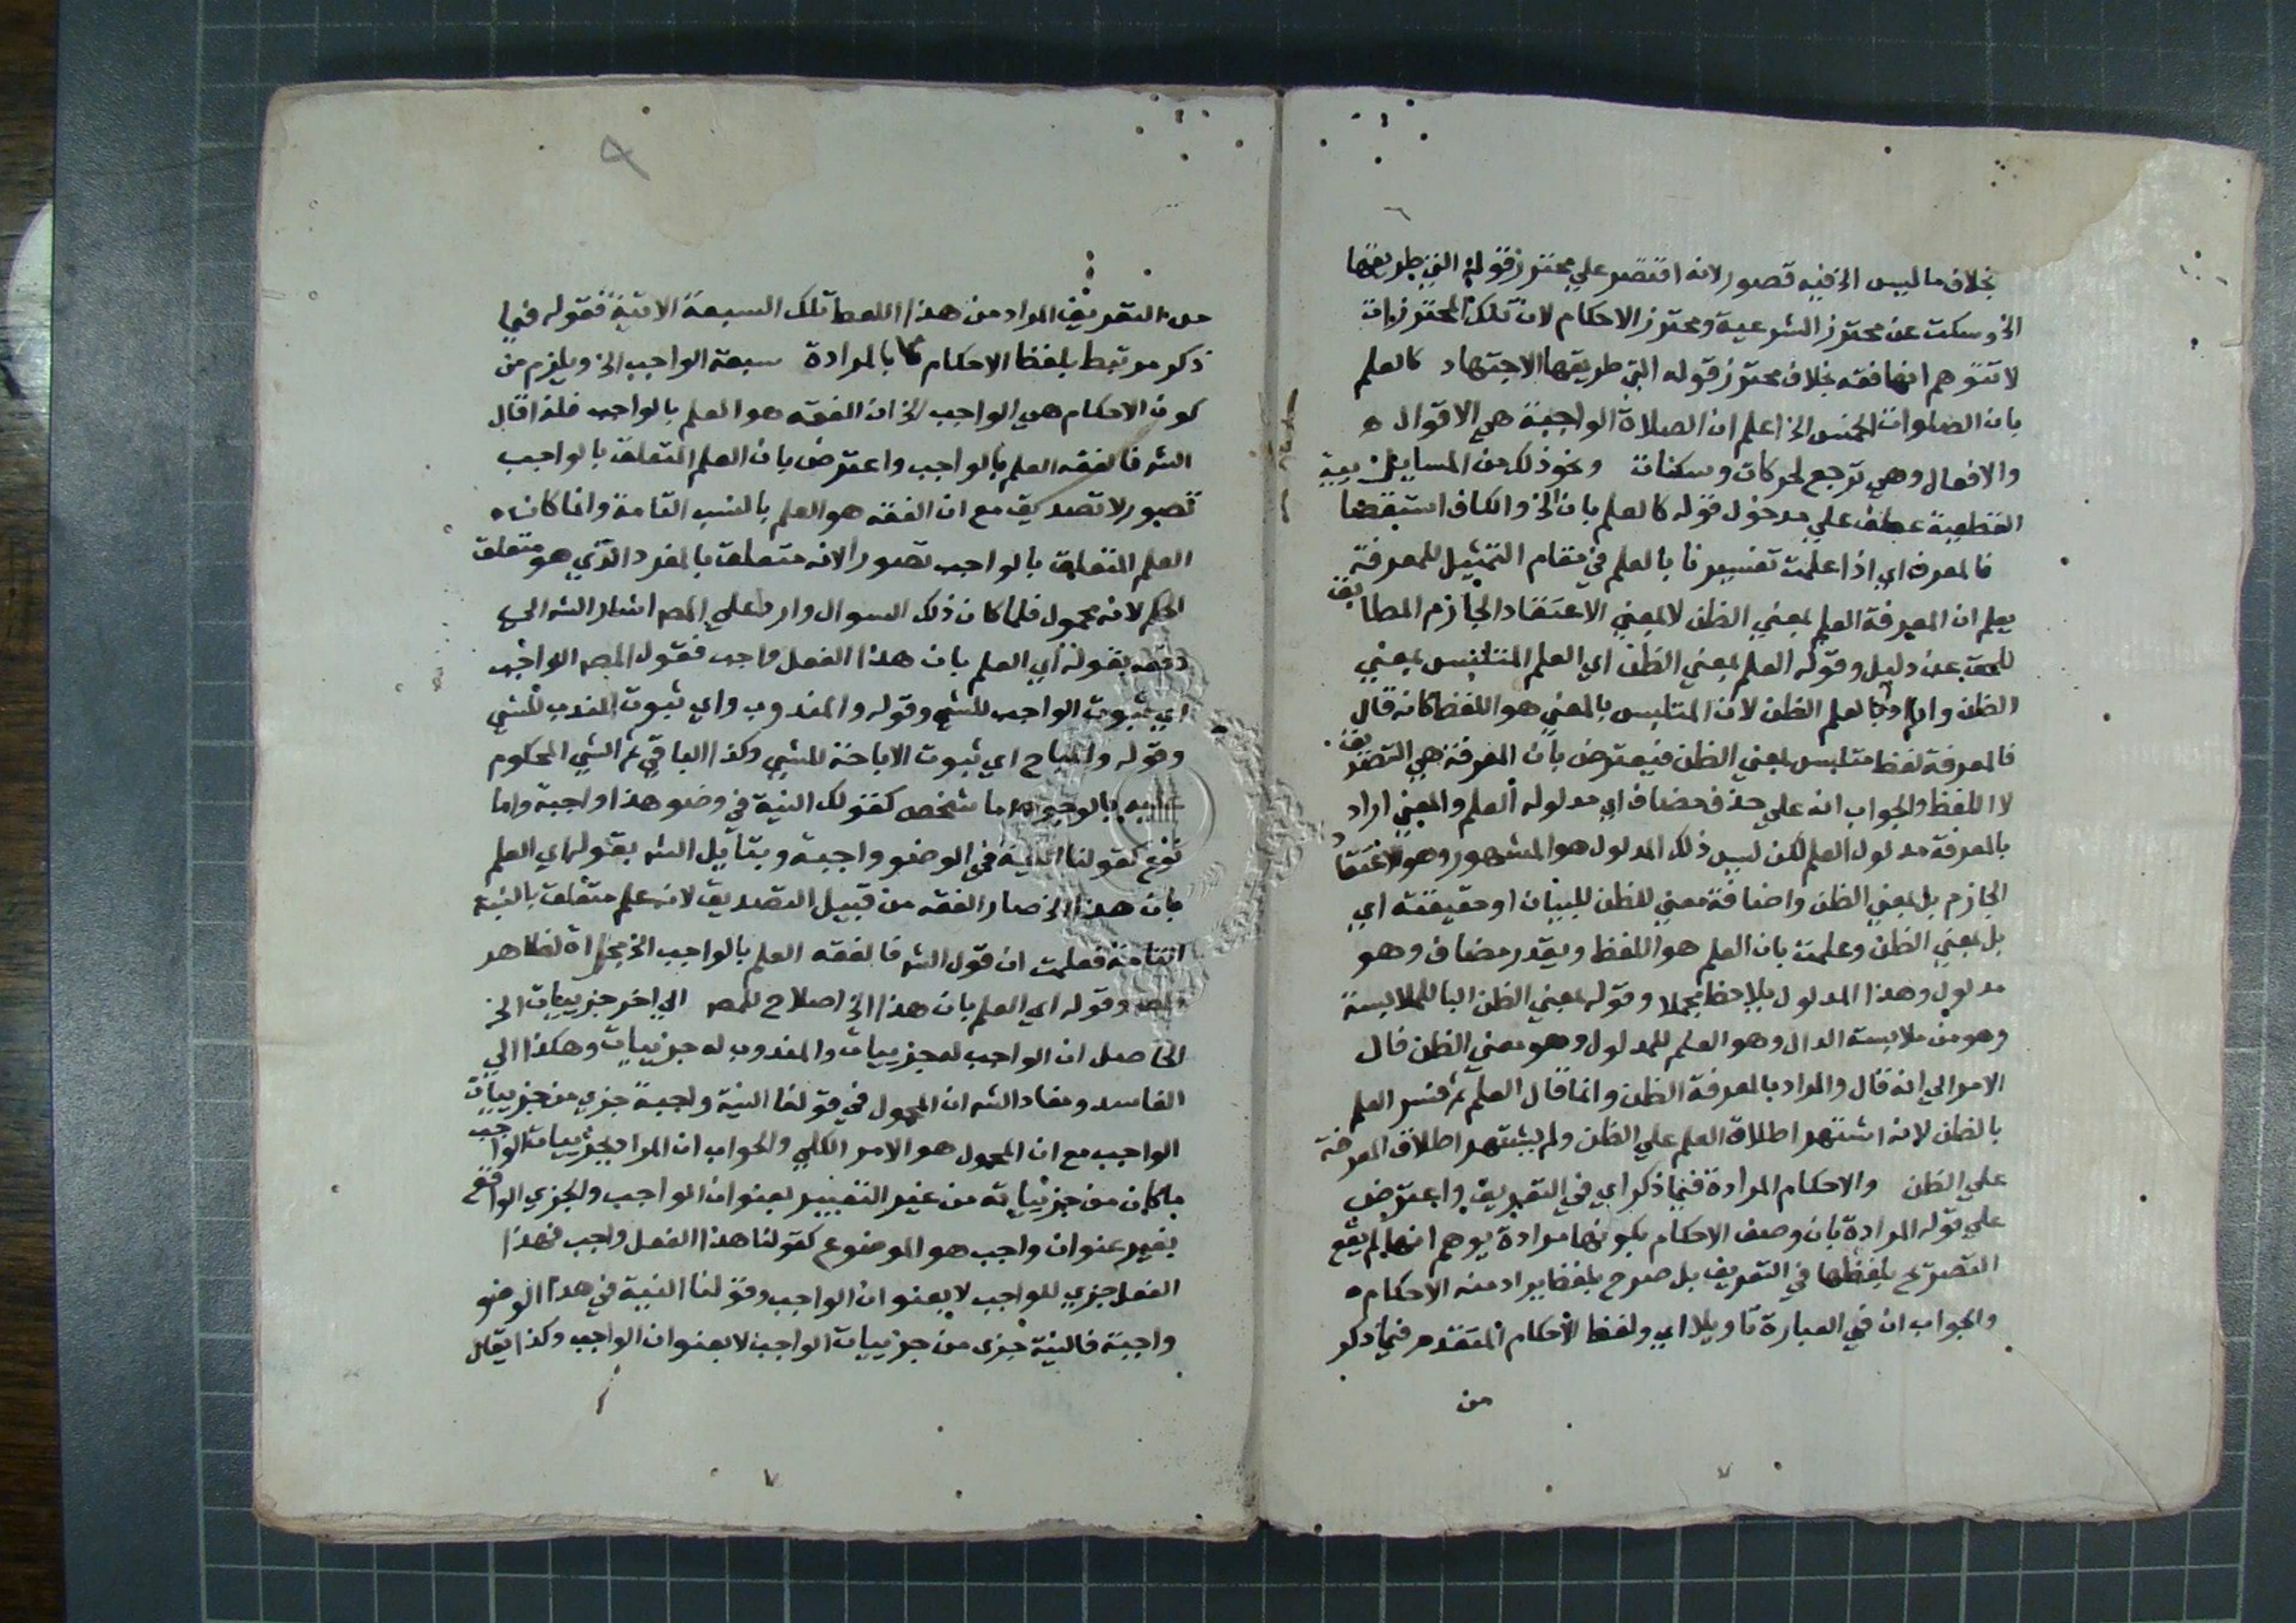 بخلاف ما ليس الخ فيه قصور لانه اقتصر علي محترز قوله التي طريقها
الخ وسكت عن محترز الشرعية ومحترز الاحكام لان تلك المحترزات
لا تتوهم انها فقه بخلاف محترز قوله التي طريقها الاجتهاد كالعلم
بان الصلوات الخمس الخ اعلم ان الصلاة الواجبة هي الاقوال
والافعال وهي ترجع لحركات وسكنات ونحو ذلك من المسايل
القطعية عطف علي مدخول قوله كالعلم بان الخ والكاف استقضا
فالمعرفة اي اذا علمت تفسيرنا بالعلم في مقام التمثيل للمعرفة
يعلم ان المعرفة العلم بمعني الظن لا بمعني الاعتقاد الجازم المطابق
للحق عن دليل وقوله العلم بمعني الظن اي العلم المتلبس بمعني
الظن وارادة بالعلم الظن لان المتلبس بالمعني هو اللفظ كانه قال
فالمعرفة لفظ متلبس بمعني الظن فيعترض بان المعرفة هي التصديق
لا اللفظ والجواب انه علي حذف مضاف اي مدلوله العلم والمعني اراد
بالمعرفة مدلول العلم لكن ليس ذلك المدلول هو المشهور وهو الاعتقاد
الجازم بل بمعني الظن واضافة معني للظن للبيان او حقيقته اي
بل بمعني الظن وعلمت بان العلم هو اللفظ ويقدر مضاف وهو
مدلول وهذا المدلول يلاحظ مجملا وقوله بمعني الظن البا للملابسة
وهو من ملابسة الدال وهو العلم للمدلول وهو معني الظن فال
الامر الي انه قال والمراد بالمعرفة الظن وانما قال العلم ثم فسر العلم
بالظن لانه اشتهر اطلاق العلم علي الظن ولم يشتهر اطلاق المعرفة
علي الظن والاحكام المرادة فيما ذكر اي في التعريف واعترض
علي قوله المرادة بان وصف الاحكام بكونها مرادة يوهم انها لم يقع
التصريح بلفظها في التعريف بل صرح بلفظ يراد منه الاحكام
والجواب ان في العبارة تاويلا اي ولفظ الاحكام المتقدم فيما ذكر
من
من التعريف المراد من هذا اللفظ تلك السبعة الاتية فقوله فيما
ذكر مرتبط بلفظ الاحكام لا بالمرادة سبعة الواجب الخ ويلزم من
كون الاحكام هي الواجب الخ ان الفقه هو العلم بالواجب فلذا قال
الشه فالفقه العلم بالواجب واعترض بان العلم المتعلق بالواجب
تصور لا تصديق مع ان الفقه هو العلم بالنسب التامة وانما كان
العلم المتعلق بالواجب تصورا لانه متعلق بالمفرد الذي هو متعلق
الحكم لانه محمول فلما كان ذلك السوال وارد علي المصه اشار الشه الي
دفعه بقوله اي العلم بان هذا الفعل واجب فقول المصه الواجب
اي ثبوت الواجب للشي وقوله والمندوب واي ثبوت الندب للشي
وقوله والمباح اي ثبوت الاباحة للشي وكذا الباقي ثم الشي المحكوم
عليه بالوجوب اما شخص كقولك النية في وضو هذا واجبة واما
نوع كقولنا النية في الوضو واجبة وبتاويل الشه بقوله اي العلم
بان هذا الخ صار الفقه من قبيل التصديق لانه علم متعلق بالنسبة
التامة فعلمت ان قول الشه فالفقه العلم بالواجب الخ مجاراة لظاهر
المصه وقوله اي العلم بان هذا الخ اصلاح للمصه الي اخر جزييات الخ
الحاصل ان الواجب له جزييات والمندوب له جزييات وهكذا الي
الفاسد ومفاد الشه ان المحمول في قولنا النية واجبة جزي من جزييات
الواجب مع ان المحمول هو الامر الكلي والجواب ان المراد بجزييات الواجب
ما كان من جزيياته من غير التعبير بعنوان الواجب والجزي الواقع
بغير عنوان واجب هو الموضوع كقولنا هذا الفعل واجب فهذا
الفعل جزي للواجب لا بعنوان الواجب وقولنا النية في هذا الوضو
واجبة فالنية جزي من جزييات الواجب لا بعنوان الواجب وكذا يقال